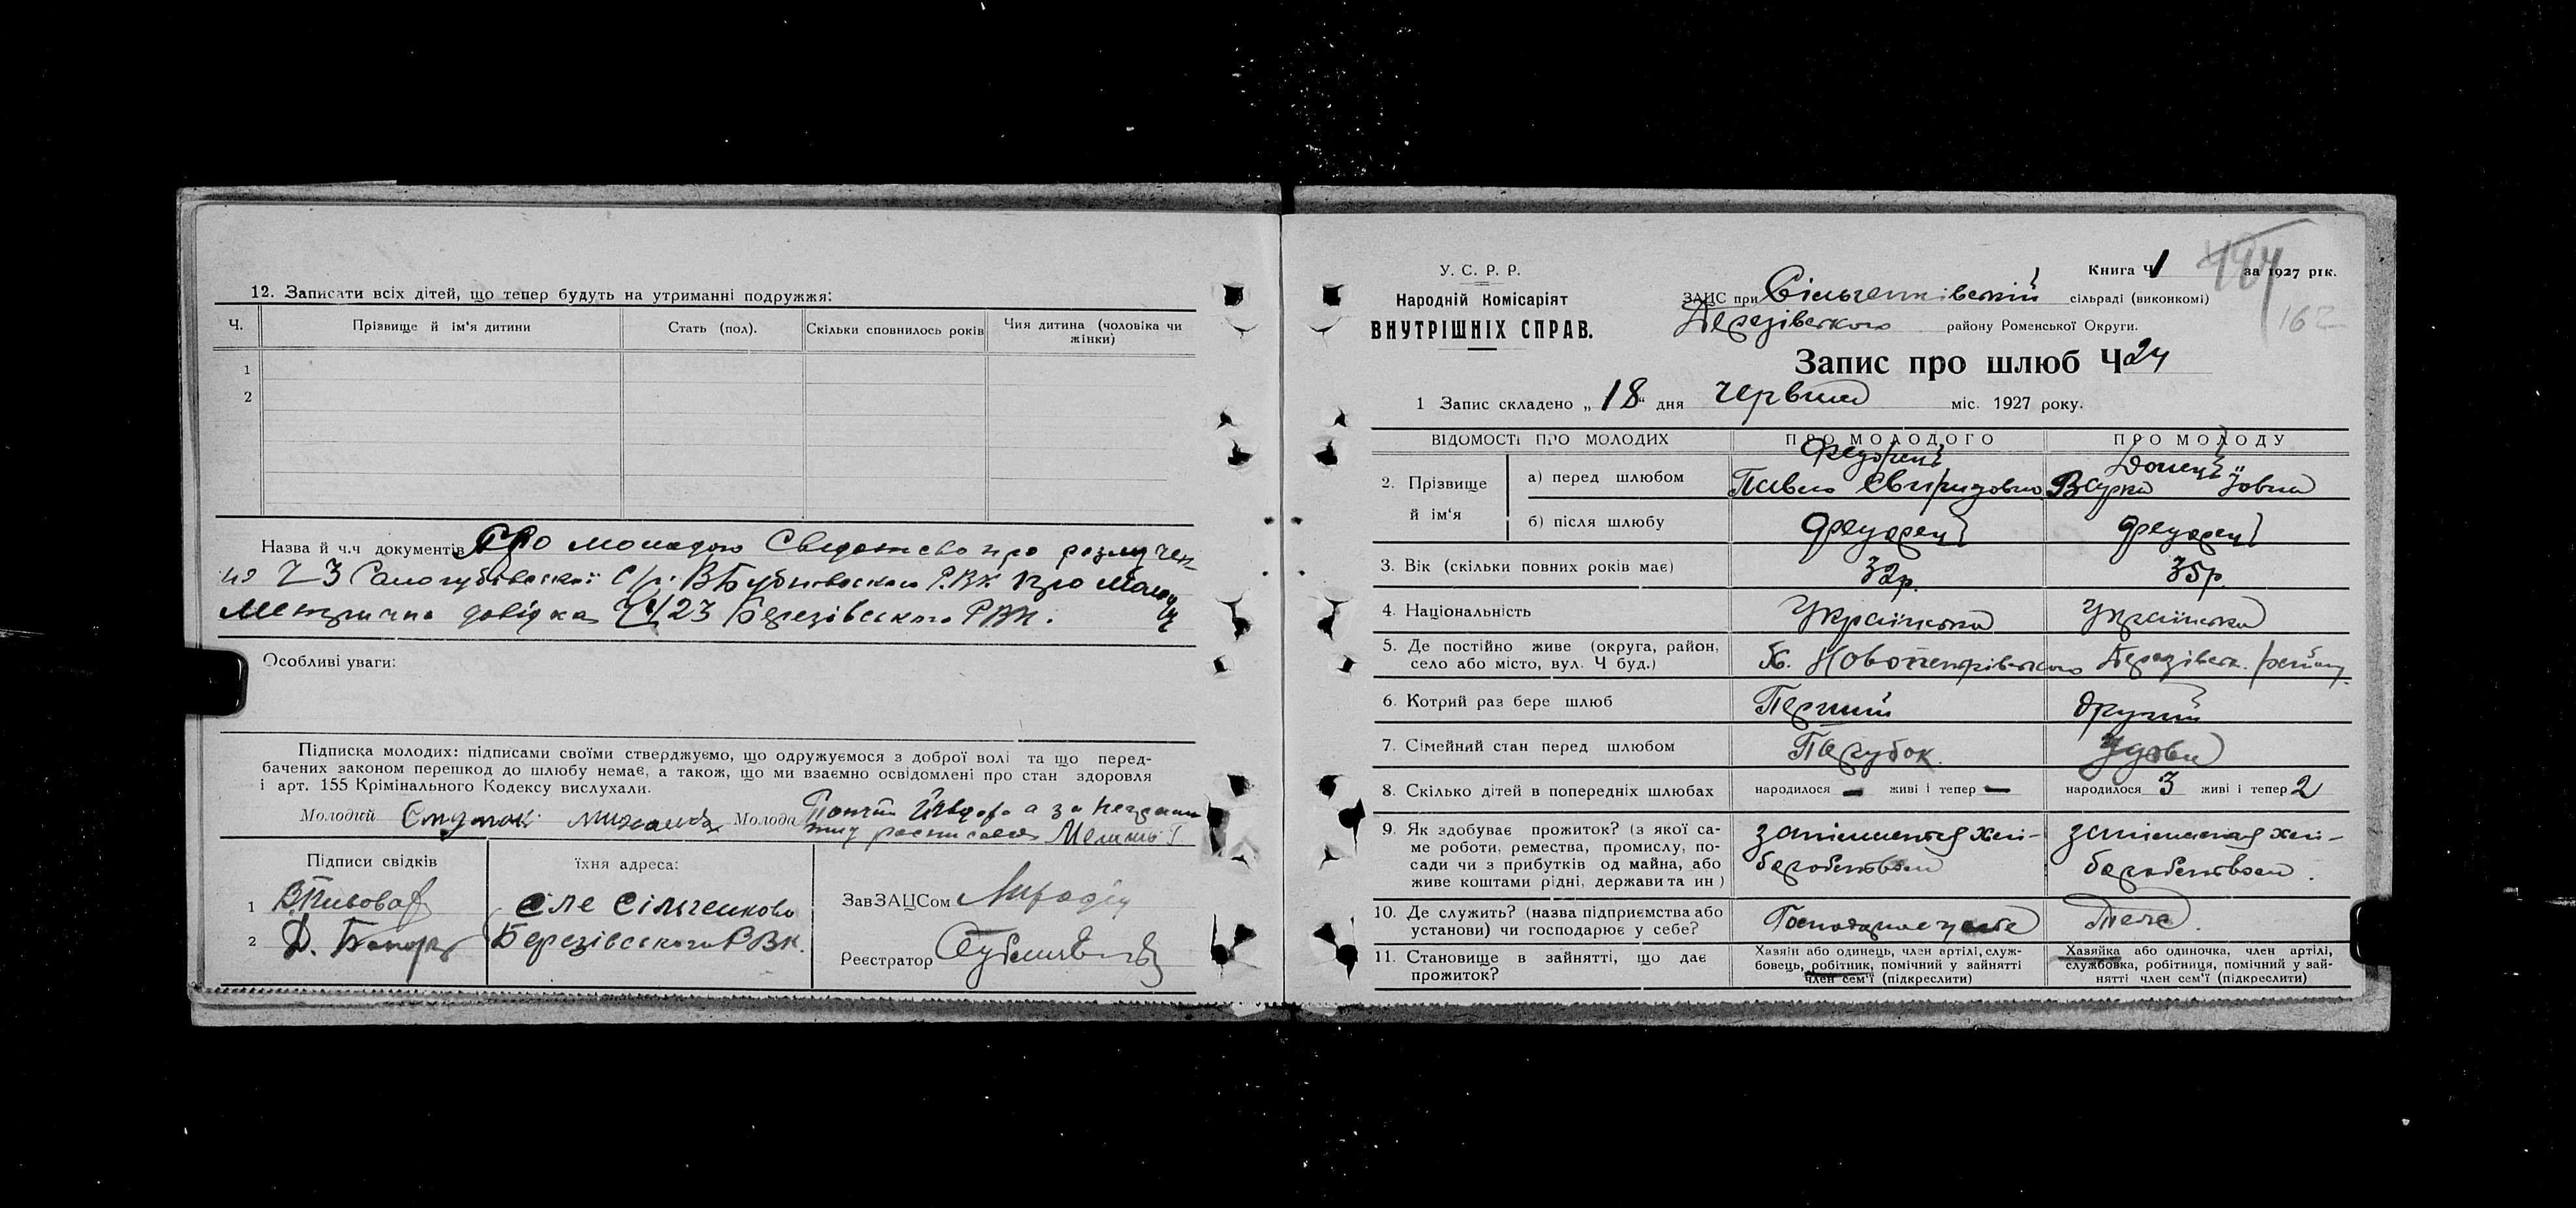 12. Записати всіх дітей, що тепер будуть на утриманні подружжя:
Ч. Прізвище й ім'я дитини Стать (пол). Скільки сповнилось років Чия дитина (чоловіка чи жінки)
1
2
Назва й ч.ч документів Про молодого Сведотство про розлучен-
ня Ч 3 Самогубівської С/р. РВК про молоду
Метрична довідка Ч 23 Березівського РВК.
Особливі уваги:
Підписка молодих: підписами своїми стверджуємо, що одружуємося з доброї волі та що перед-
бачених законом перешкод до шлюбу немає, а також, що ми взаємно освідомлені про стан здоровля
і арт. 155 Крімінального Кодексу вислухали.
Молодий Молода а за
росписався
Підписи свідків їхня адреса:
1 В.Пивовар сле Сільченково ЗавЗАЦСом
2 Д. Березівського РВК. Реєстратор
У. С. Р. Р.
Народній Комісаріят
ВНУТРІШНІХ СПРАВ.
Книга Ч 1 за 1927 рік.
184
162
ЗАЦС при Сільченківській сільраді (виконкомі)
Березівського району Роменської Округи.
Запис про шлюб Ч 24
1 Запис складено „18" дня червня міс. 1927 року.
ВІДОМОСТІ ПРО МОЛОДИХ ПРО МОЛОДОГО ПРО МОЛОДУ
2. Прізвище й ім'я а) перед шлюбом Федорець Павло Свиридович Донець Варка Йовна
б) після шлюбу Федорець Федорець
3. Вік (скільки повних років має) 32р. 35р.
4. Національність Українська Українська
5. Де постійно живе (округа, район,
село або місто, вул. Ч буд.) х. Новопетрівського Березівськ. району
6. Котрий раз бере шлюб Перший другий
7. Сімейний стан перед шлюбом Парубок Удова
8. Скілько дітей в попередніх шлюбах народилося — живі і тепер — народилося 3 живі і тепер 2
9. Як здобуває прожиток? (з якої са-
ме роботи, ремества, промислу, по-
сади чи з прибутків од майна, або
живе коштами рідні, держави та ин)
занімается хлі-
баробством
занімается хлі-
баробством.
10. Де служить? (назва підприємства або
установи) чи господарює у себе? Господарює у себе Теж.
11. Становище в зайнятті, що дає
прожиток?
Хазяїн або одинець, член артілі, служ-
бовець, робітник, помічний у зайнятті
член сем'ї (підкреслити)
Хазяйка або одиночка, член артілі,
службовка, робітниця, помічний у зай-
нятті член сем'ї (підкреслити)